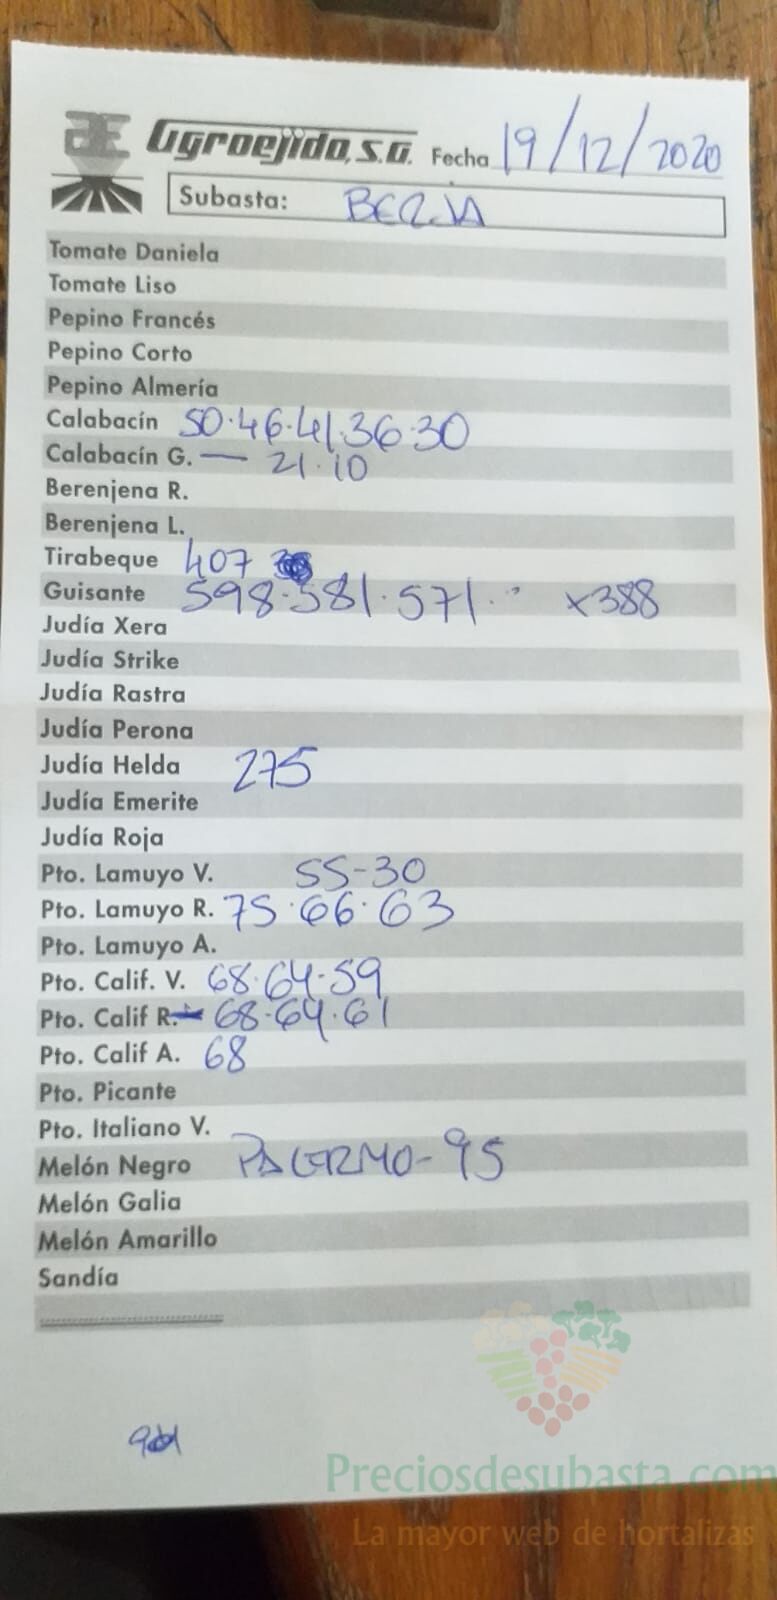 Agroejido, S.A. Fecha 19/12/2020
Subasta: BERJA
Tomate Daniela
Tomate Liso
Pepino Francés
Pepino Corto
Pepino Almería
Calabacín 50·46·41·36·30
Calabacín G. — 21·10
Berenjena R.
Berenjena L.
Tirabeque 407
Guisante 598·581·571·· x388
Judía Xera
Judía Strike
Judía Rastra
Judía Perona
Judía Helda 275
Judía Emerite
Judía Roja
Pto. Lamuyo V. 55-30
Pto. Lamuyo R. 75·66·63
Pto. Lamuyo A.
Pto. Calif. V. 68·64·59
Pto. Calif R. 68·64·61
Pto. Calif A. 68
Pto. Picante
Pto. Italiano V.
Melón Negro PALERMO-95
Melón Galia
Melón Amarillo
Sandía
Preciosdesubasta.com
La mayor web de hortalizas